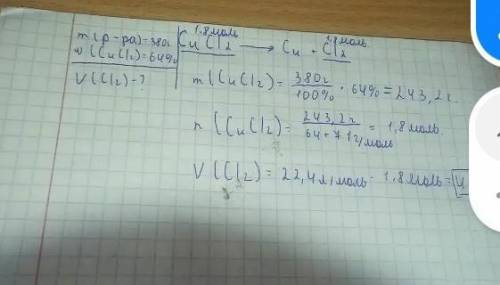 m(р-ра)=380г
w(CuCl₂)=64%
V(Cl₂)-?
1,8моль
CuCl₂ → Cu + Cl₂
m(CuCl₂) = 380г/100% · 64% = 243,2г.
n(CuCl₂) = 243,2г/64+71г/моль = 1,8моль
V(Cl₂) = 22,4л/моль · 1,8моль =